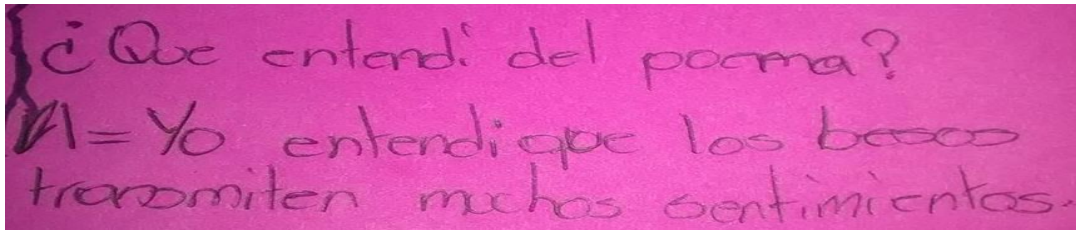 ¿Que entendí del poema?
R= Yo entendi que los besos
transmiten muchos sentimientos.